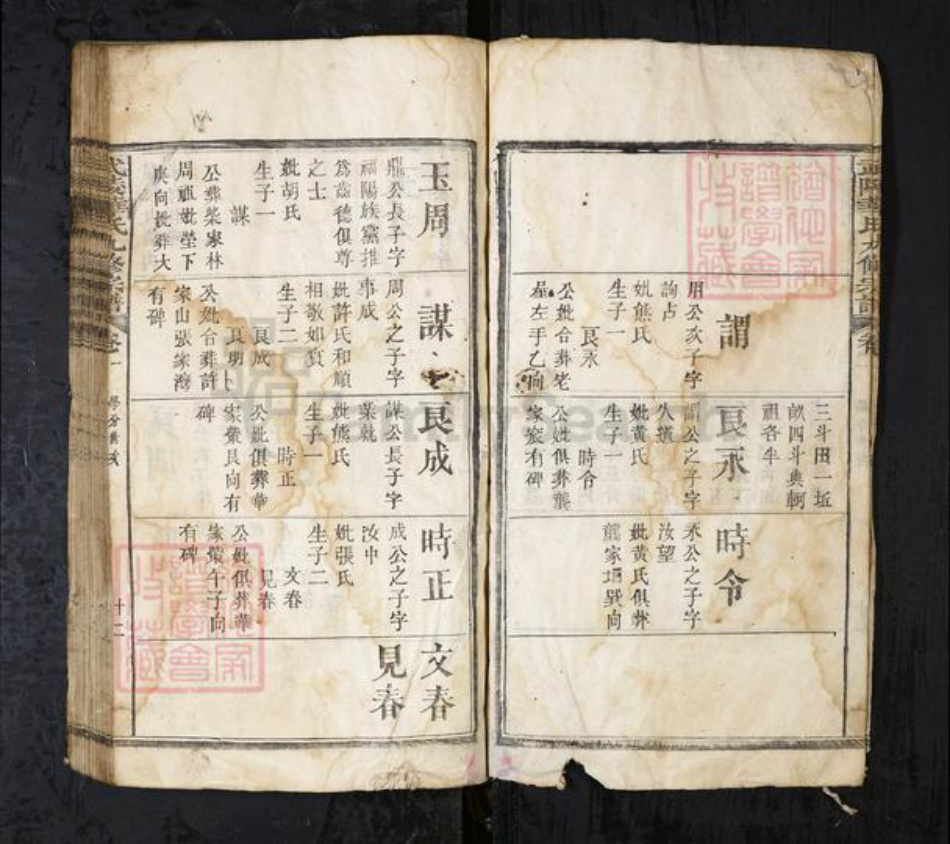 三斗田一坵
畝四斗與軻
祖各半
謂
用公次子字
詢占
妣熊氏
生子一
艮永
公妣合葬老
屋左手乙向
艮永
謂公之子字
久道
妣黃氏
生子一
時令
公妣俱葬龔
家窊有碑
時令
永公之子字
汝望
妣黃氏俱葬
龔家垇巽向
玉周
鼎公長子字
福陽族黨推
為齒德俱尊
之士
妣胡氏
生子一
謀
公葬柴家林
周祖妣塋下
庚向妣葬大
謀
周公之子字
事成
妣許氏和順
相敬如賓
生子二
艮成
艮明
公妣合葬許
家山張家灣
有碑
艮成
謀公長子字
業就
妣熊氏
生子一
時正
公妣俱葬華
家嶺艮向有
碑
時正
成公之子字
汝中
妣張氏
生子二
文春
見春
公妣俱葬華
家嶺午子向
有碑
文春
見春
氏九修宗譜
卷一
十二
FamilySearch